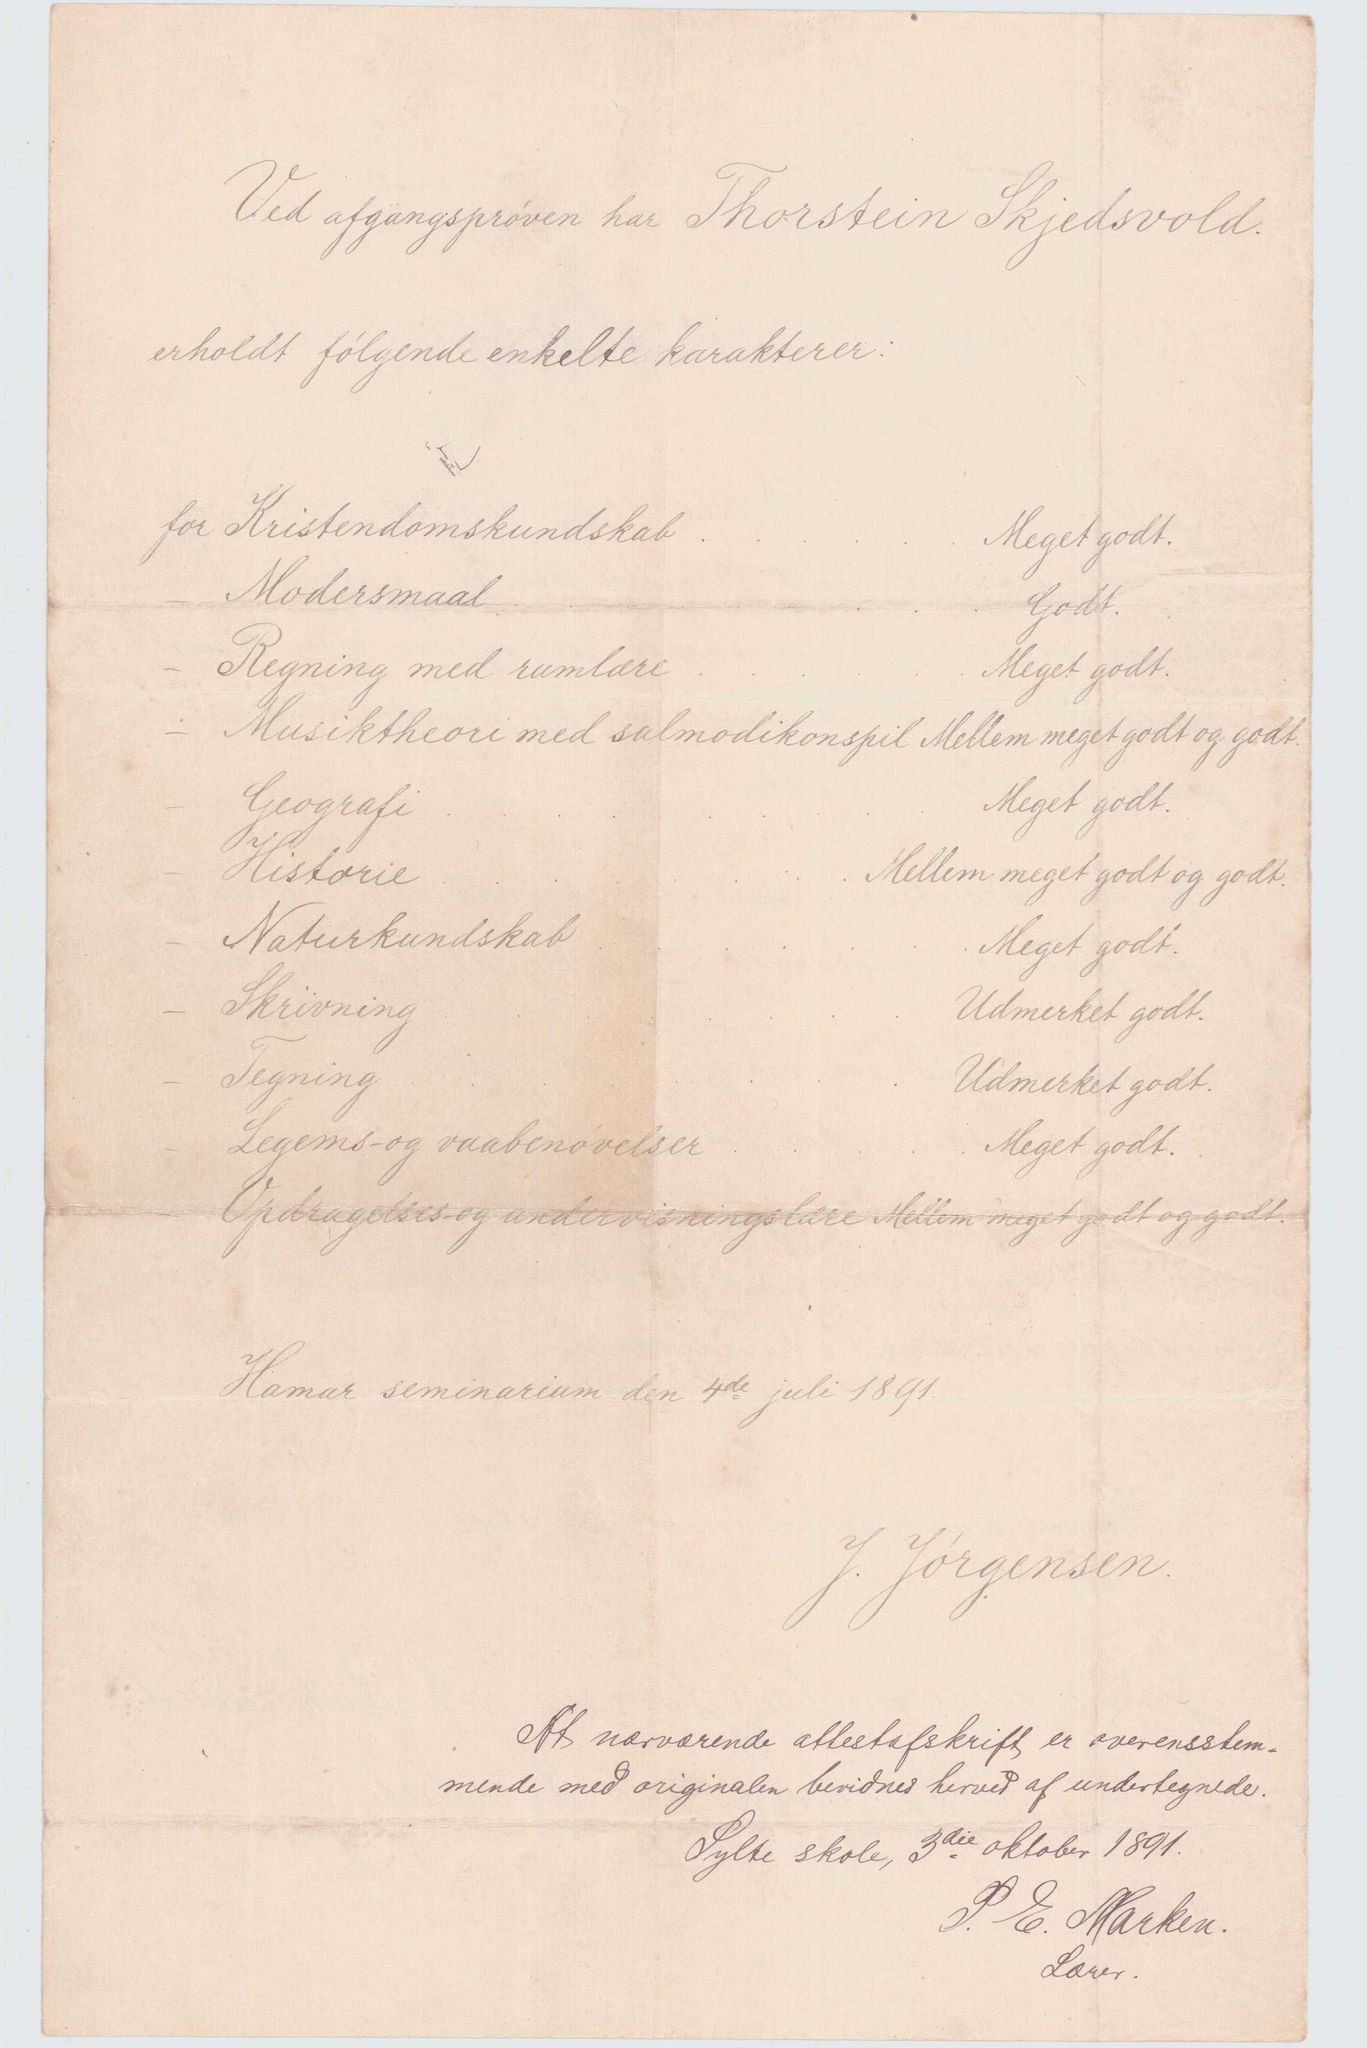 Ved afgangsprøven har Thorstein Skjedsvold.
erholdt følgende enkelte karakterer:
for Kristendomskundskab . . . . . . Meget godt.
– Modersmaal . . . . . . . . Godt.
– Regning med rumlære . . . . . . Meget godt.
– Musiktheori med salmodikonspil Mellem meget godt og godt.
– Geografi . . . . . . . . Meget godt.
– Historie . . . . . . . . Mellem meget godt og godt.
– Naturkundskab . . . . . . . Meget godt.
– Skrivning . . . . . . . . Udmerket godt.
– Tegning . . . . . . . . Udmerket godt.
– Legems- og vaabenøvelser . . . . . Meget godt.
– Opdragelses- og undervisningslære Mellem meget godt og godt.
Hamar seminarium den 4de juli 1891.
J. Jørgensen.
At nærværende attestafskrift er overensstem-
mende med originalen bevidnes herved af undertegnede.
Sylte skole, 3die oktober 1891.
P. E. Marken.
Lærer.